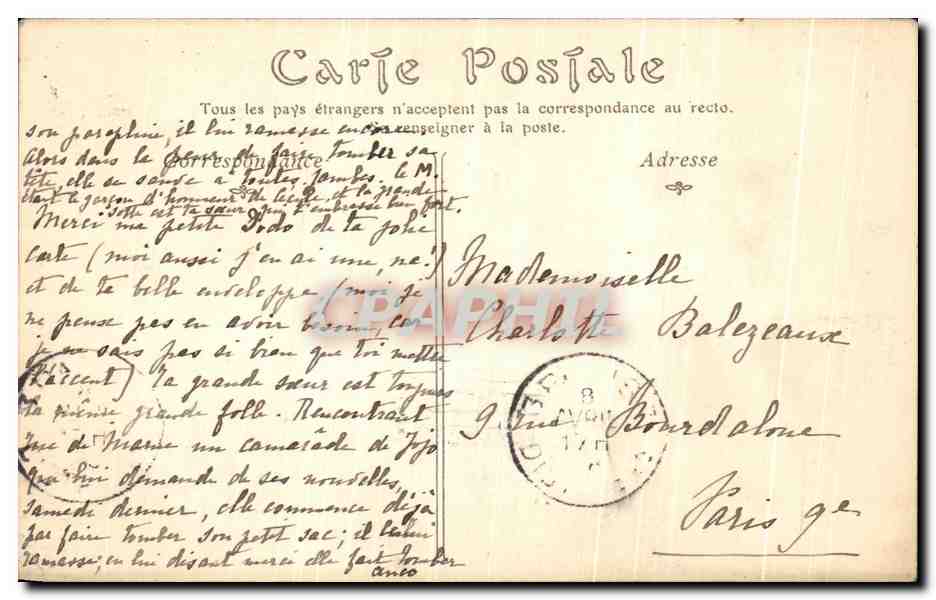 Carte Postale
Tous les pays étrangers n'acceptent pas la correspondance au recto.
se renseigner à la poste.
Correspondance
Adresse
son parapluie, il lui ramasse encore.
Alors dans la peur de faire tomber sa
tête, elle se sauve à toutes jambes. le M.
était le garçon d'honneur de Cécile, et la grande
sotte est ta sœur qui t'embrasse bien fort.
Merci ma petite Dodo de ta jolie
carte (moi aussi j'en ai une, na!)
et de ta belle enveloppe (moi je
ne pense pas en avoir besoin, car
je ne sais pas si bien que toi mettre
l'accent) Ta grande sœur est toujours
la même grande folle. Rencontrant
rue de Marne un camarade de Jojo
qui lui demande de ses nouvelles,
samedi dernier, elle commence déjà
par faire tomber son petit sac; il le lui
ramasse; en lui disant merci elle fait tomber
anco
Mademoiselle
Charlotte Balezeaux
9 rue Bourdaloue
Paris 9e
8
17 H
CPARHTL